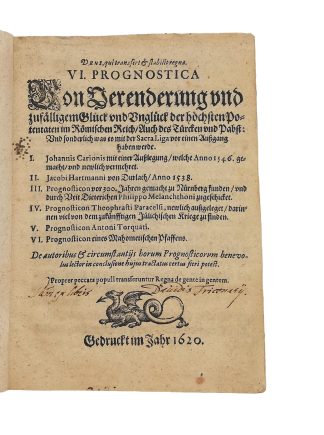 DEUS, qui transfert & stabilit regna.
VI. PROGNOSTICA
Von Verenderung vnd
zufälligem Glück vnd Vnglück der höchsten Po-
tentaten im Römischen Reich / Auch des Türcken vnd Pabst:
Vnd sonderlich was es mit der Sacra Liga vor einen Außgang
haben werde.
I. Johannis Carionis mit einer Außlegung / welche Anno 1546. ge-
macht / vnd newlich vermehret.
II. Jacobi Hartmanni von Durlach / Anno 1538.
III. Prognosticon vor 300. Jahren gemacht zu Nürnberg funden / vnd
durch Veit Dieterichen Philippo Melanchthoni zugeschicket.
IV. Prognosticon Theophrasti Paracelsi, newlich außgeleget / darin-
nen viel von dem zukünfftigen Jülichischen Kriege zu finden.
V. Prognosticon Antoni Torquati.
VI. Prognosticon eines Mahometischen Pfaffens.
De autoribus & circumstantijs horum Prognosticorum benevo-
lus lector in conclusione hujus tractatus certus fieri potest.
Propter peccata populi transferuntur Regna de gente in gentem.
Gedruckt im Jahr 1620.